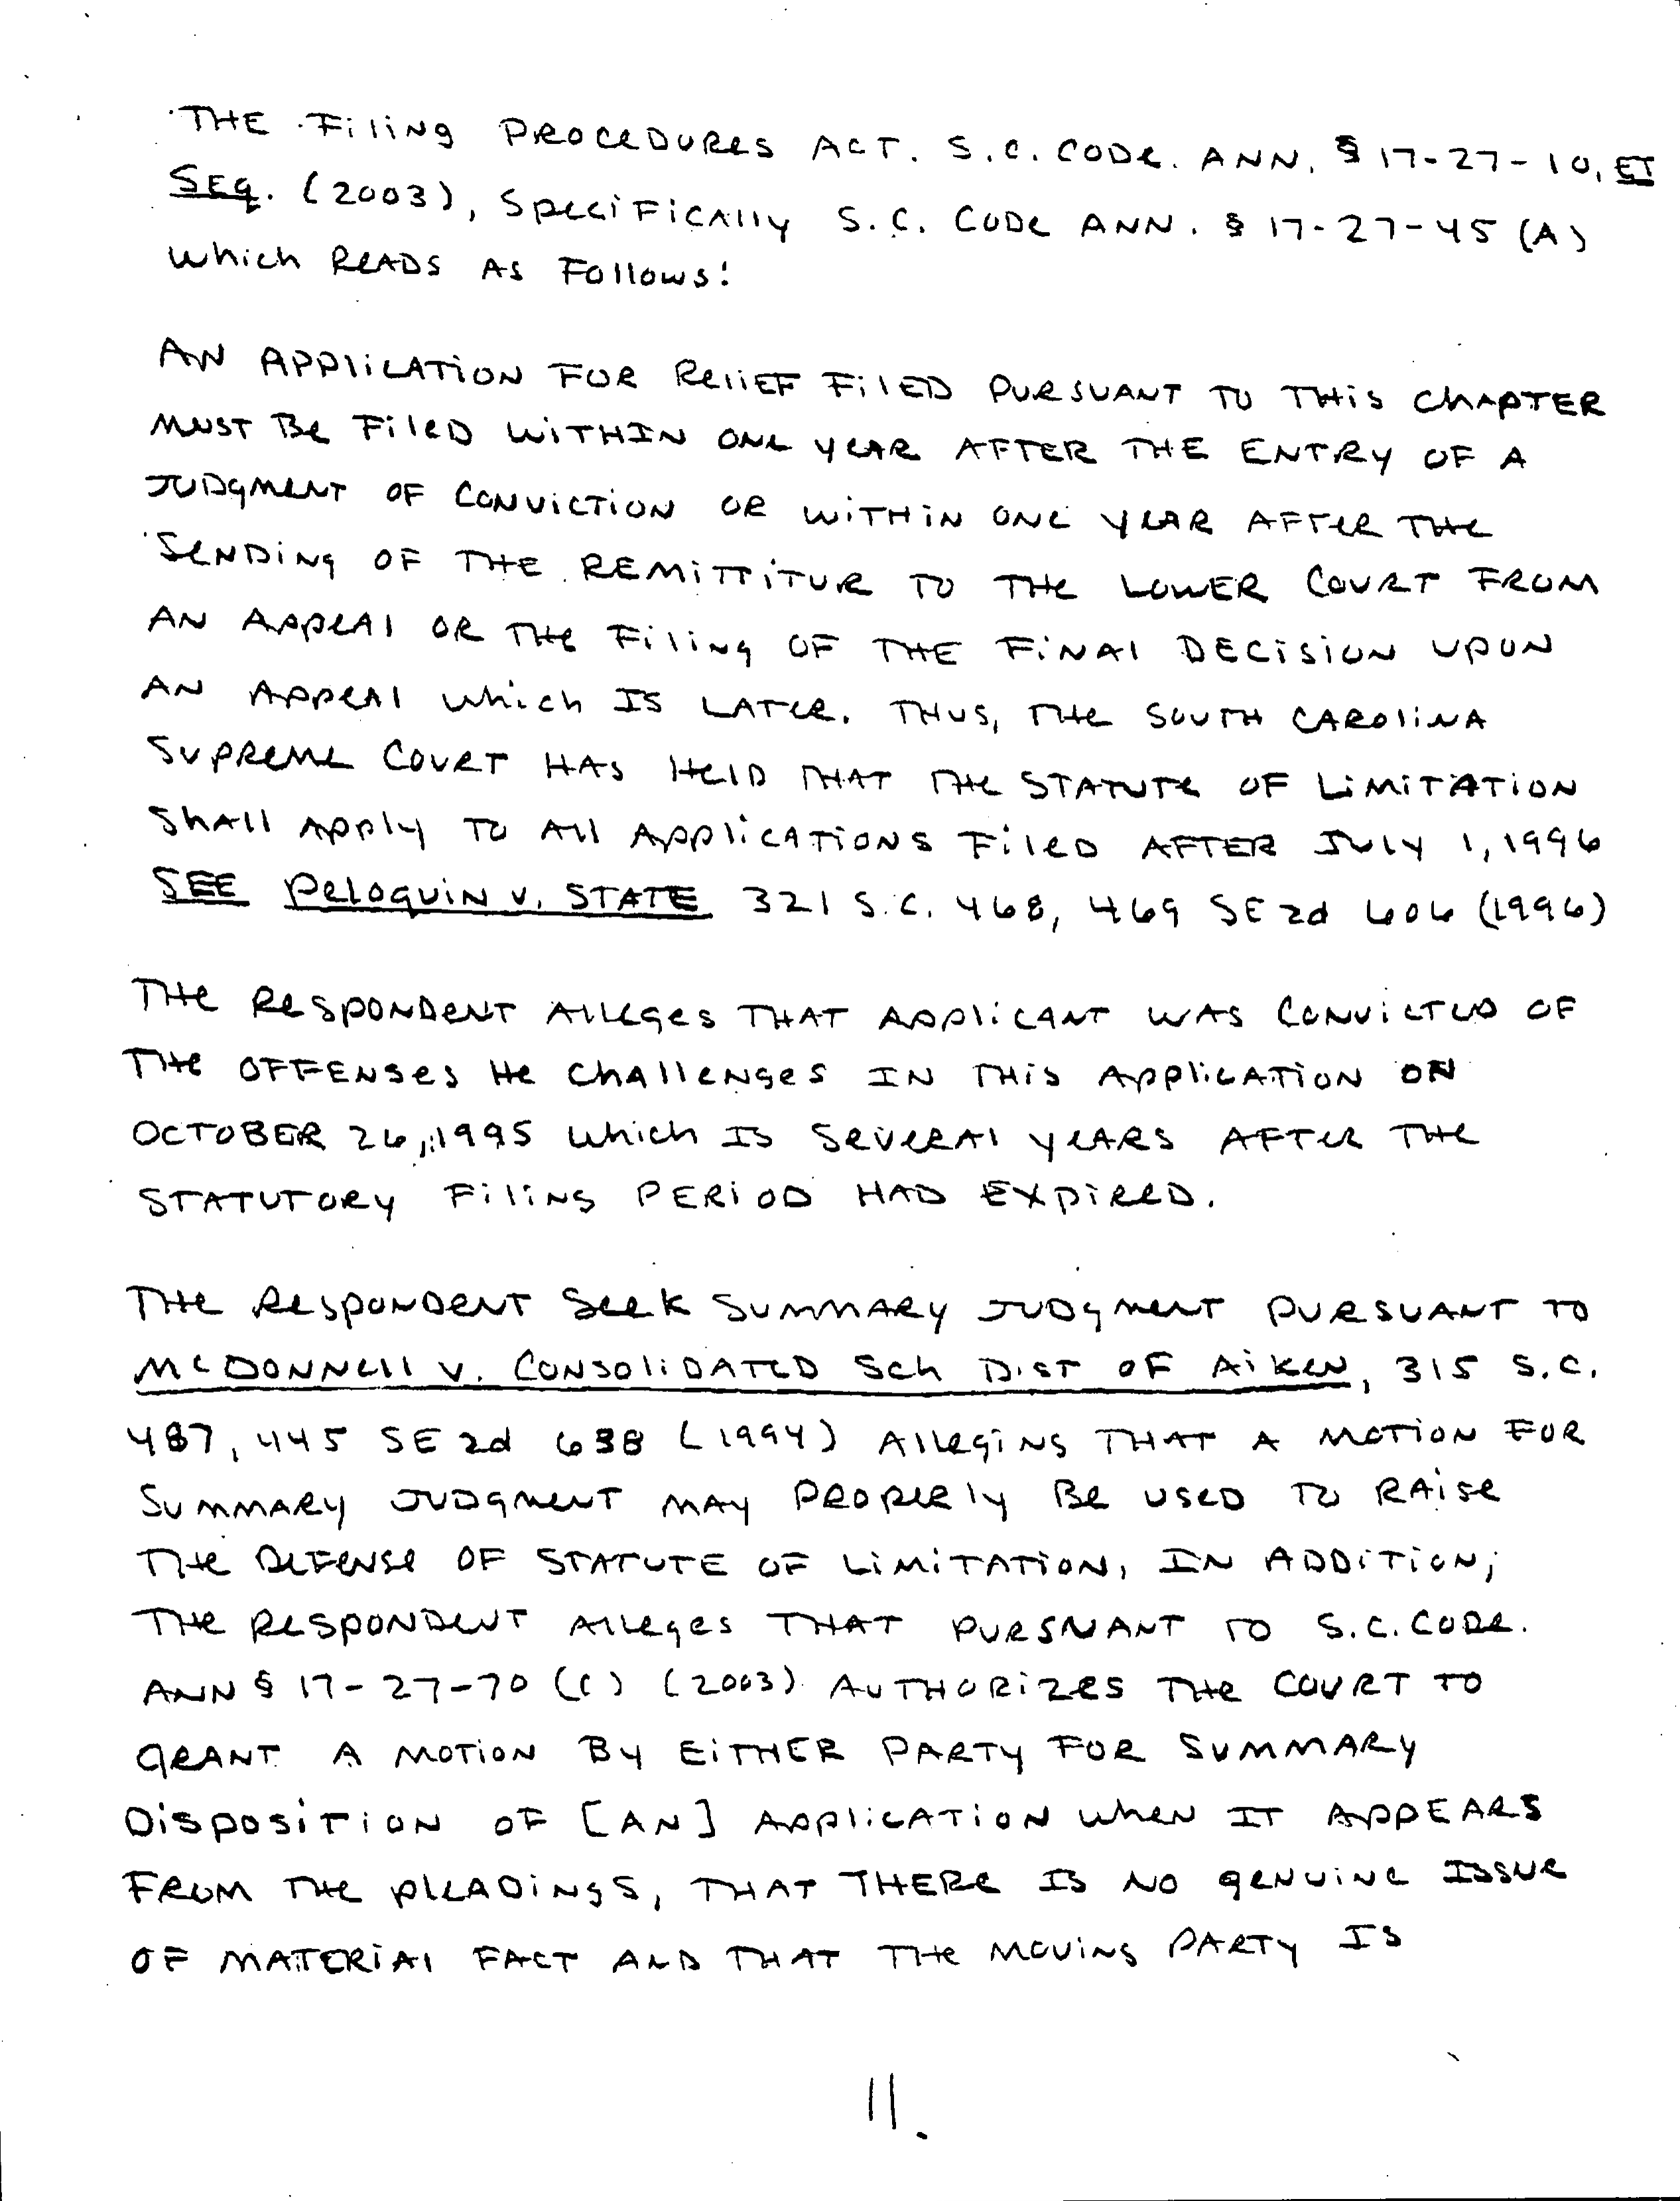 THE Filing PROCEDURES ACT. S.C. CODE. ANN. § 17-27-10, ET
SEq. (2003), SpeciFically S.C. CODE ANN. § 17-27-45 (A)
which READS AS Follows:
AN APPliCATION FOR ReliEF FilED PURSUANT TO THis ChAPTER
MUST Be FileD WITHIN ONE yEAR AFTER THE ENTRy OF A
JUDgMENT OF CONViCTiON OR WiTHiN ONE YEAR AFTER THE
SENDiNg OF THE REMiTTiTUR TO THE LOWER COURT FROM
AN AppeAl OR THE FiliNg OF THE FiNAl DECiSiON UPON
AN AppeAl which IS LATER. THUS, THE SOUTH CAROliNA
SUPREME COURT HAS HelD THAT THE STATUTE OF LiMiTATiON
ShAll Apply TO All ApplicATiONS FileD AFTER JUly 1, 1996
SEE PeLoquiN v. STATE 321 S.C. 468, 469 SE 2d 606 (1996)
THE RESPONDENT AlleGes THAT ApplicANT WAS CONViCTED OF
THE OFFENSes He ChAllENges IN THiS ApplicATiON ON
OCTOBER 26, 1995 which IS SEVERAl yEARS AFTER THE
STATUTORy FiliNg PERiOD HAD EXpiRED.
THE RESPONDENT SeeK SUMMARy JUDgMENT PURSUANT TO
McDONNEll v. CONSOliDATED Sch DiST OF AiKEN, 315 S.C.
487, 445 SE 2d 638 (1994) AllegiNg THAT A MOTiON FOR
SUMMARy JUDgMENT MAy PROPERly Be USED TO RAiSe
THE DEFENSE OF STATUTE OF LiMiTATiON, IN ADDiTiON,
THE RESPONDENT Alleges THAT PURSUANT TO S.C. CODE.
ANN § 17-27-70 (C) (2003) AUTHORiZES THE COURT TO
gRANT A MOTiON By EiTHER PARTy FOR SUMMARy
DiSpOSiTiON OF [AN] ApplicATiON wheN IT APPEARS
FROM THE pleADiNgS, THAT THERE IS NO geNUiNE ISSUE
OF MATERiAl FACT AND THAT THE MOViNg PARTy IS
11.